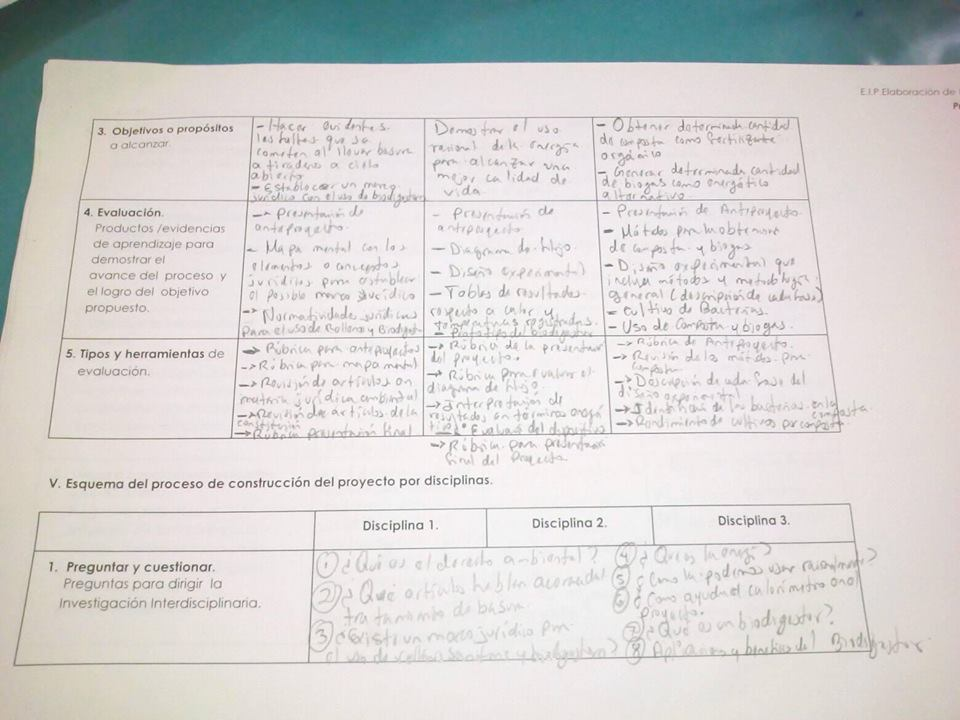 E.I.P. Elaboración de
3. Objetivos o propósitos
a alcanzar.
- Hacer evidentes
las faltas que se
cometen al llevar basura
a tiraderos a cielo
abierto
- Establecer un marco
jurídico con el uso de biodigestor
Demostrar el uso
racional de la energía
para alcanzar una
mejor calidad de
vida.
- Obtener determinada cantidad
de composta como fertilizante
orgánico
- Generar determinada cantidad
de biogas como energético
alternativo.
4. Evaluación.
Productos /evidencias
de aprendizaje para
demostrar el
avance del proceso y
el logro del objetivo
propuesto.
- Presentación de
anteproyecto.
- Mapa mental con los
elementos o conceptos
jurídicos para establecer
el posible marco jurídico
- Normatividades jurídicas
para el uso de Relleno y Biodigest
- Presentación de
anteproyecto
- Diagrama de flujo.
- Diseño experimental
- Tablas de resultados
respecto a calor y
temperaturas registradas.
- Prototipo de biodigestor
- Presentación de Anteproyecto.
- Métodos para la obtención
de composta y biogas
- Diseño experimental que
incluya métodos y metodología
general (descripción de cada fase)
- Cultivo de Bacterias.
- Uso de Composta y biogas.
5. Tipos y herramientas de
evaluación.
-> Rúbrica para anteproyectos
-> Rúbrica para mapa mental
-> Revisión de artículos en
materia jurídica ambiental
-> Revisión de artículos de la
constitución
-> Rúbrica presentación final
-> Rúbrica de la presentación
del proyecto.
-> Rúbrica para evaluar el
diagrama de flujo.
-> Interpretación de
resultados en términos energé
ticos
-> Evaluación del dispositivo
-> Rúbrica para presentación
final del Proyecto
-> Rúbrica de Anteproyecto.
-> Revisión de los métodos para
composta
-> Descripción de cada fase del
diseño experimental
-> Identificación de las bacterias en la
composta.
-> Rendimiento de cultivos por composta.
V. Esquema del proceso de construcción del proyecto por disciplinas.
Disciplina 1.
Disciplina 2.
Disciplina 3.
1. Preguntar y cuestionar.
Preguntas para dirigir la
Investigación Interdisciplinaria.
① ¿Qué es el derecho ambiental?
② ¿Qué artículos hablan acerca del
tratamiento de basura
③ ¿Existe un marco jurídico para
el uso de relleno sanitario y biodigestores?
④ ¿Que es la energía?
⑤ ¿Como la podemos usar racionalmente?
⑥ ¿Como ayuda el calorímetro en el
proyecto.
⑦ ¿Qué es un biodigestor?
⑧ Aplicaciones y beneficios del Biodigestor.